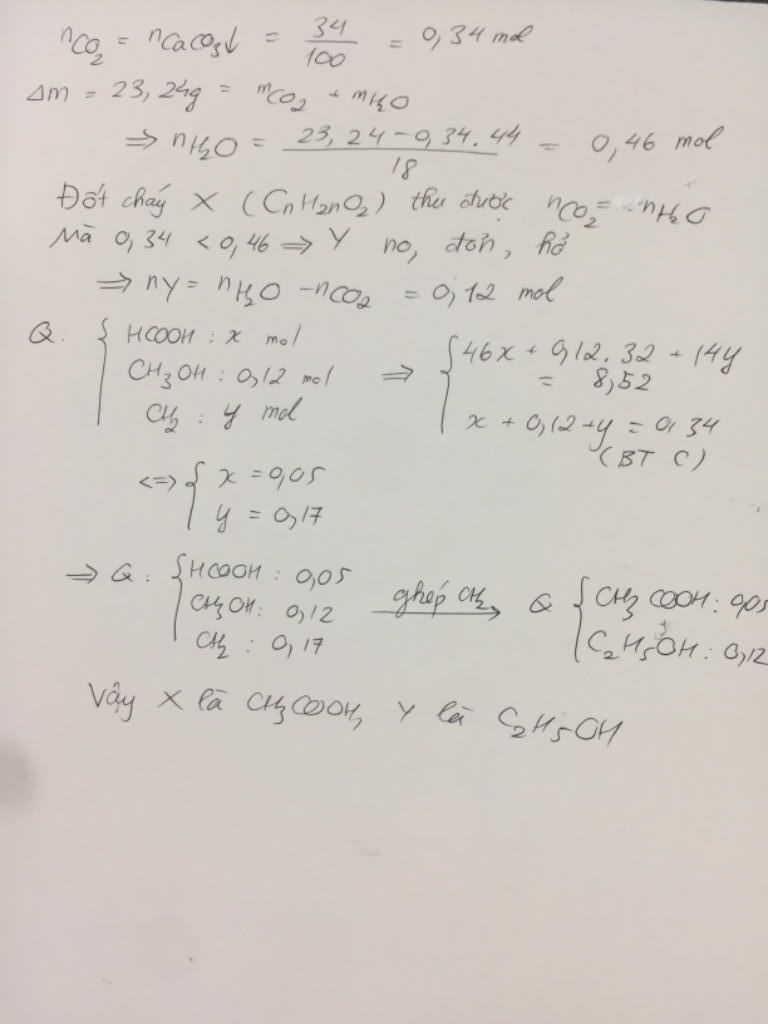 nCO2 = nCaCO3↓ = 34/100 = 0,34 mol
Δm = 23,24g = mCO2 + mH2O
⇒ nH2O = (23,24 - 0,34.44)/18 = 0,46 mol
Đốt cháy X (CnH2nO2) thu được nCO2 = nH2O
Mà 0,34 < 0,46 ⇒ Y no, đơn, hở
⇒ nY = nH2O - nCO2 = 0,12 mol
Q: { HCOOH : x mol
CH3OH : 0,12 mol
CH2 : y mol
⇒ { 46x + 0,12.32 + 14y
= 8,52
x + 0,12 + y = 0,34
(BT C)
<=> { x = 0,05
y = 0,17
⇒ Q: { HCOOH : 0,05
CH3OH : 0,12
CH2 : 0,17
ghép CH2 →
Q { CH3COOH : 0,05
C2H5OH : 0,12
Vậy X là CH3COOH, Y là C2H5OH